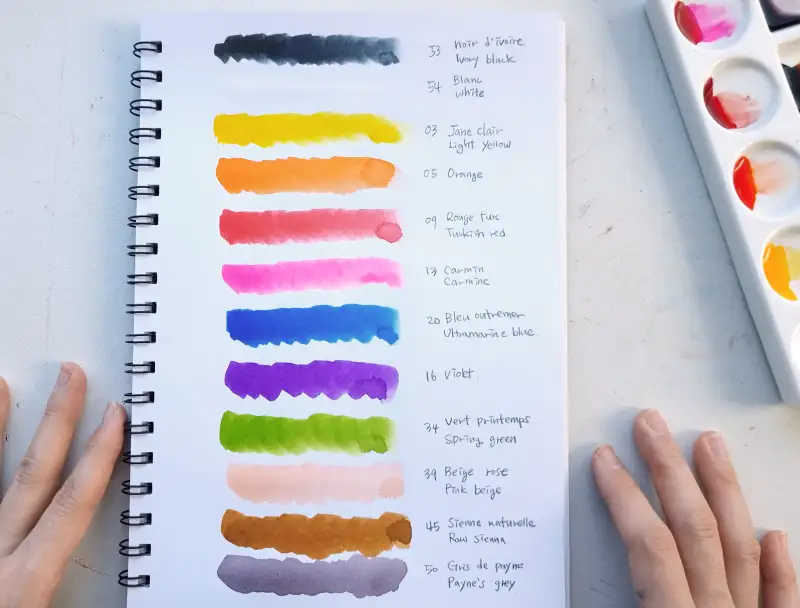 53 Noir d'ivoire
Ivory black
54 Blanc
white
03 Jane clair
Light Yellow
05 Orange
09 Rouge Turc
Turkish red
13 Carmin
Carmine
20 Bleu outremer
Ultramarine blue.
16 Violet
34 Vert printemps
Spring green
39 Beige rose
Pink beige
45 Sienne naturelle
Raw sienna
50 Gris de payne
Payne's grey